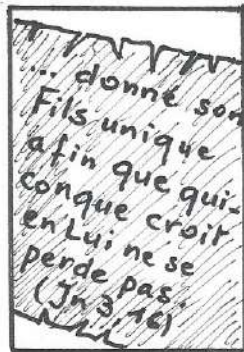 ... donné son
Fils unique
afin que qui-
conque croit
en Lui ne se
perde pas.
(Jn 3 16)